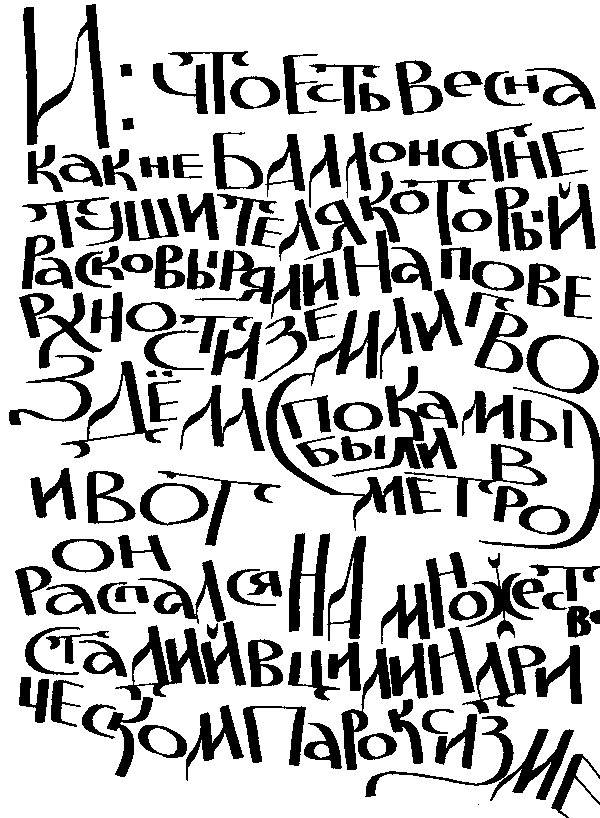 И: ЧТО ЕСТЬ ВЕСНА
КАК НЕ БАЛЛОН ОГНЕ
ТУШИТЕЛЯ КОТОРЫЙ
РАСКОВЫРЯЛИ НА ПОВЕ
РХНОСТИ ЗЕМЛИ ГВО
ЗДЁМ (ПОКА МЫ
БЫЛИ В
МЕТРО)
И ВОТ
ОН
РАСПАЛСЯ НА МНОЖЕСТВО
СТАДИЙ В ЦИЛИНДРИ
ЧЕСКОМ ПАРОКСИЗМЕ